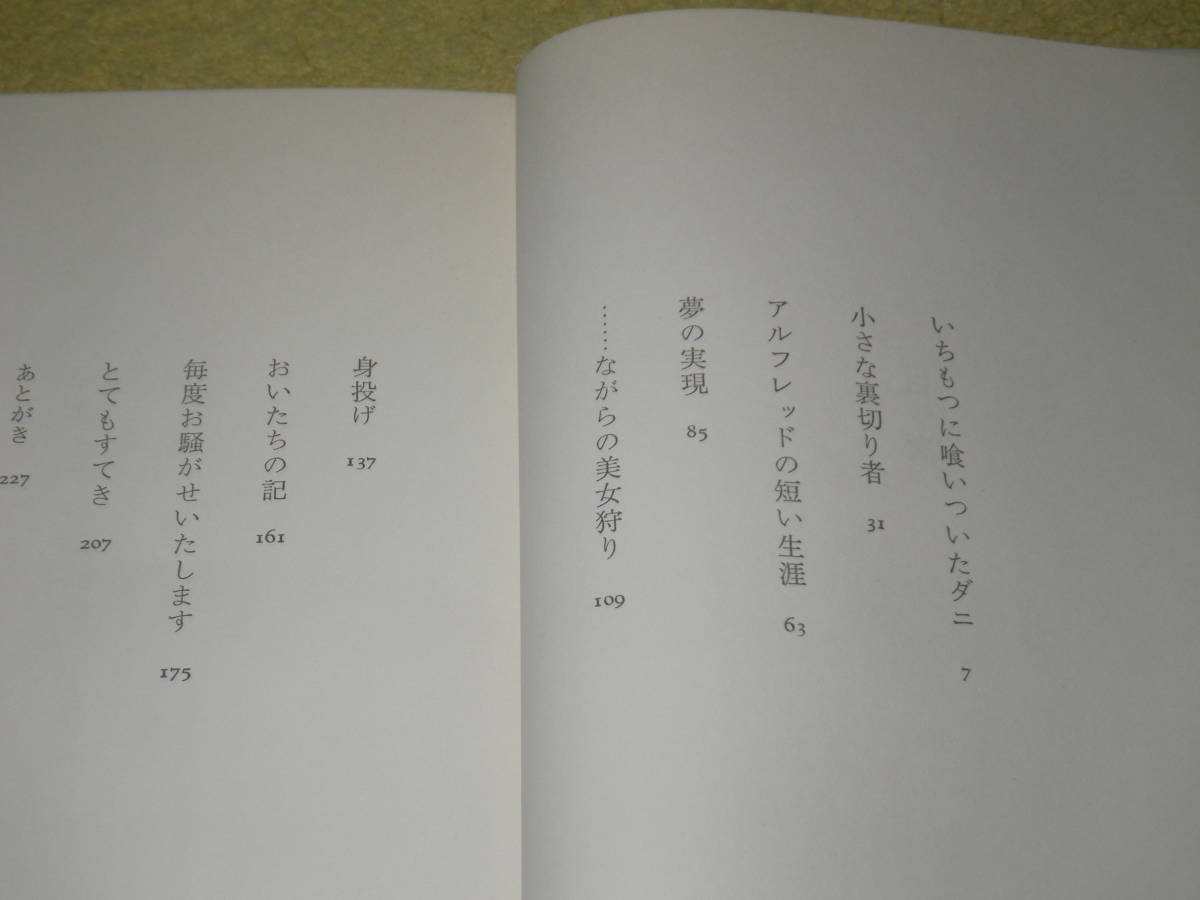 いちもつに喰いついたダニ 7
小さな裏切り者 31
アルフレッドの短い生涯 63
夢の実現 85
……ながらの美女狩り 109
身投げ 137
おいたちの記 161
毎度お騒がせいたします 175
とてもすてき 207
あとがき 227